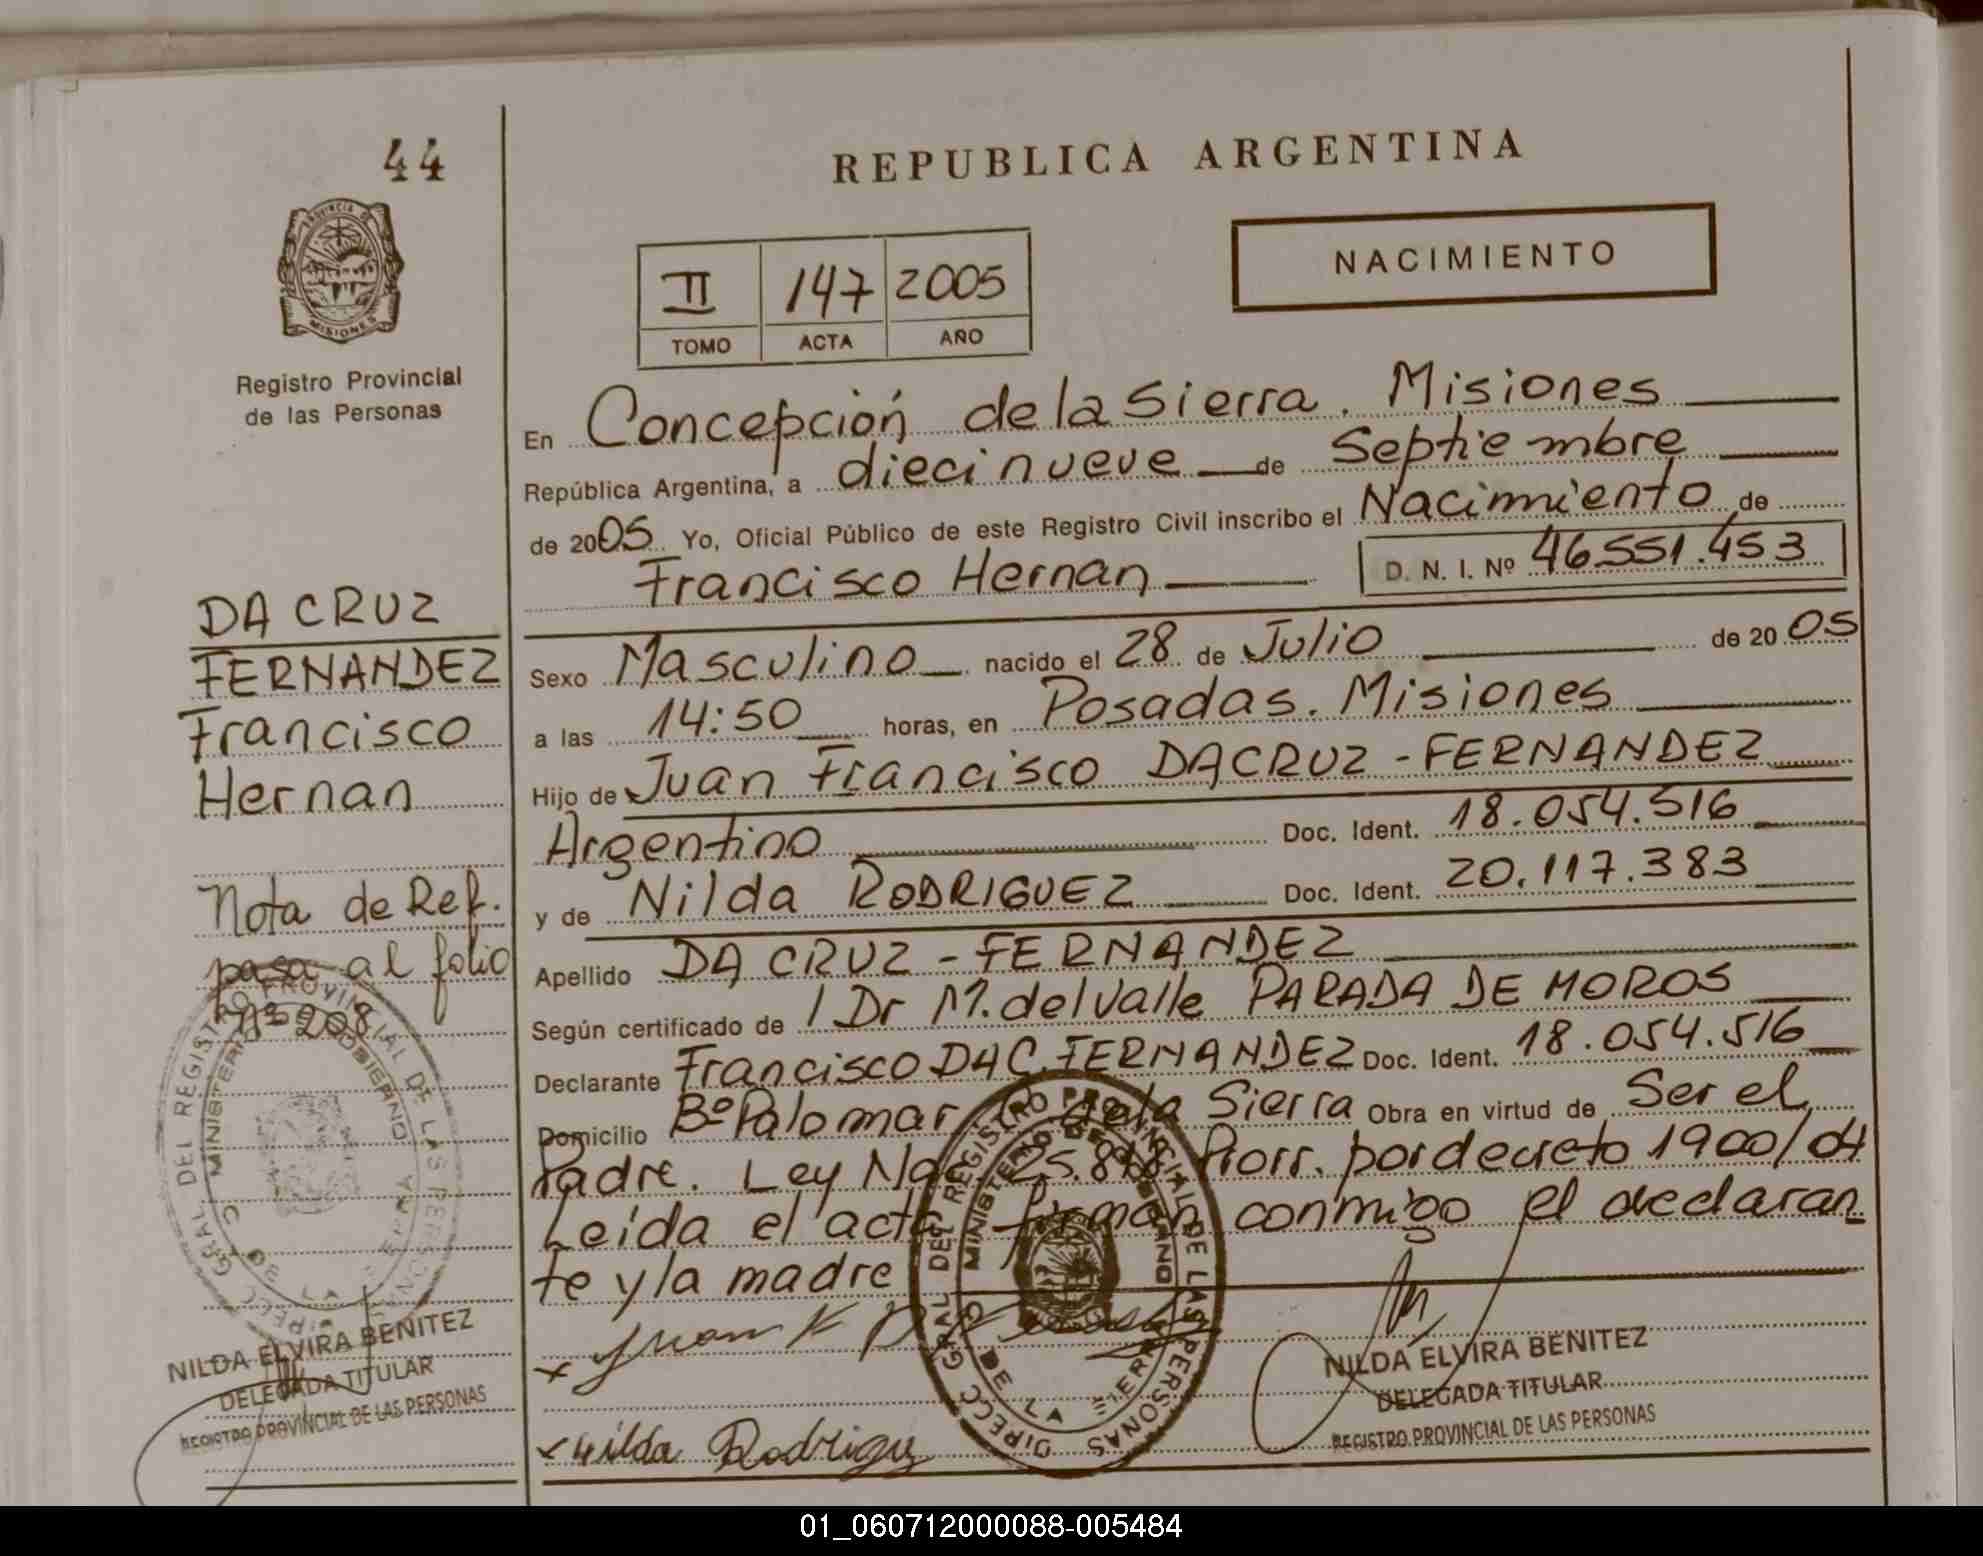 44
REPUBLICA ARGENTINA
PROVINCIA DE
MISIONES
Registro Provincial
de las Personas
II 147 2005
TOMO ACTA AÑO
NACIMIENTO
En Concepción de la Sierra. Misiones
República Argentina, a diecinueve de Septiembre
de 2005 Yo, Oficial Público de este Registro Civil inscribo el Nacimiento de
Francisco Hernan D. N. I. Nº 46.551.453
Sexo Masculino nacido el 28 de Julio de 20 05
a las 14:50 horas, en Posadas. Misiones
Hijo de Juan Francisco DACRUZ - FERNANDEZ
Argentino Doc. Ident. 18.054.516
y de Nilda RODRIGUEZ Doc. Ident. 20.117.383
Apellido DA CRUZ - FERNANDEZ
Según certificado de / Dr M. del Valle PARADA DE MOROS
Declarante Francisco DAC. FERNANDEZ Doc. Ident. 18.054.516
Domicilio Bº Palomar C. dela Sierra Obra en virtud de Ser el
Padre. Ley Nac 25.818 Prorr. por decreto 1900/04
Leída el acta firman conmigo el declaran
te y la madre
x Juan F
x Nilda Rodriguez
NILDA ELVIRA BENITEZ
DELEGADA TITULAR
REGISTRO PROVINCIAL DE LAS PERSONAS
DIRECC GRAL DEL REGISTRO PROVINCIAL DE LAS PERSONAS
MINISTERIO DE GOBIERNO
DA CRUZ
FERNANDEZ
Francisco
Hernan
Nota de Ref.
pasa al folio
Nº 208
DIRECC GRAL DEL REGISTRO PROVINCIAL DE LAS PERSONAS
MINISTERIO GOBIERNO
NILDA ELVIRA BENITEZ
DELEGADA TITULAR
REGISTRO PROVINCIAL DE LAS PERSONAS
01_060712000088-005484